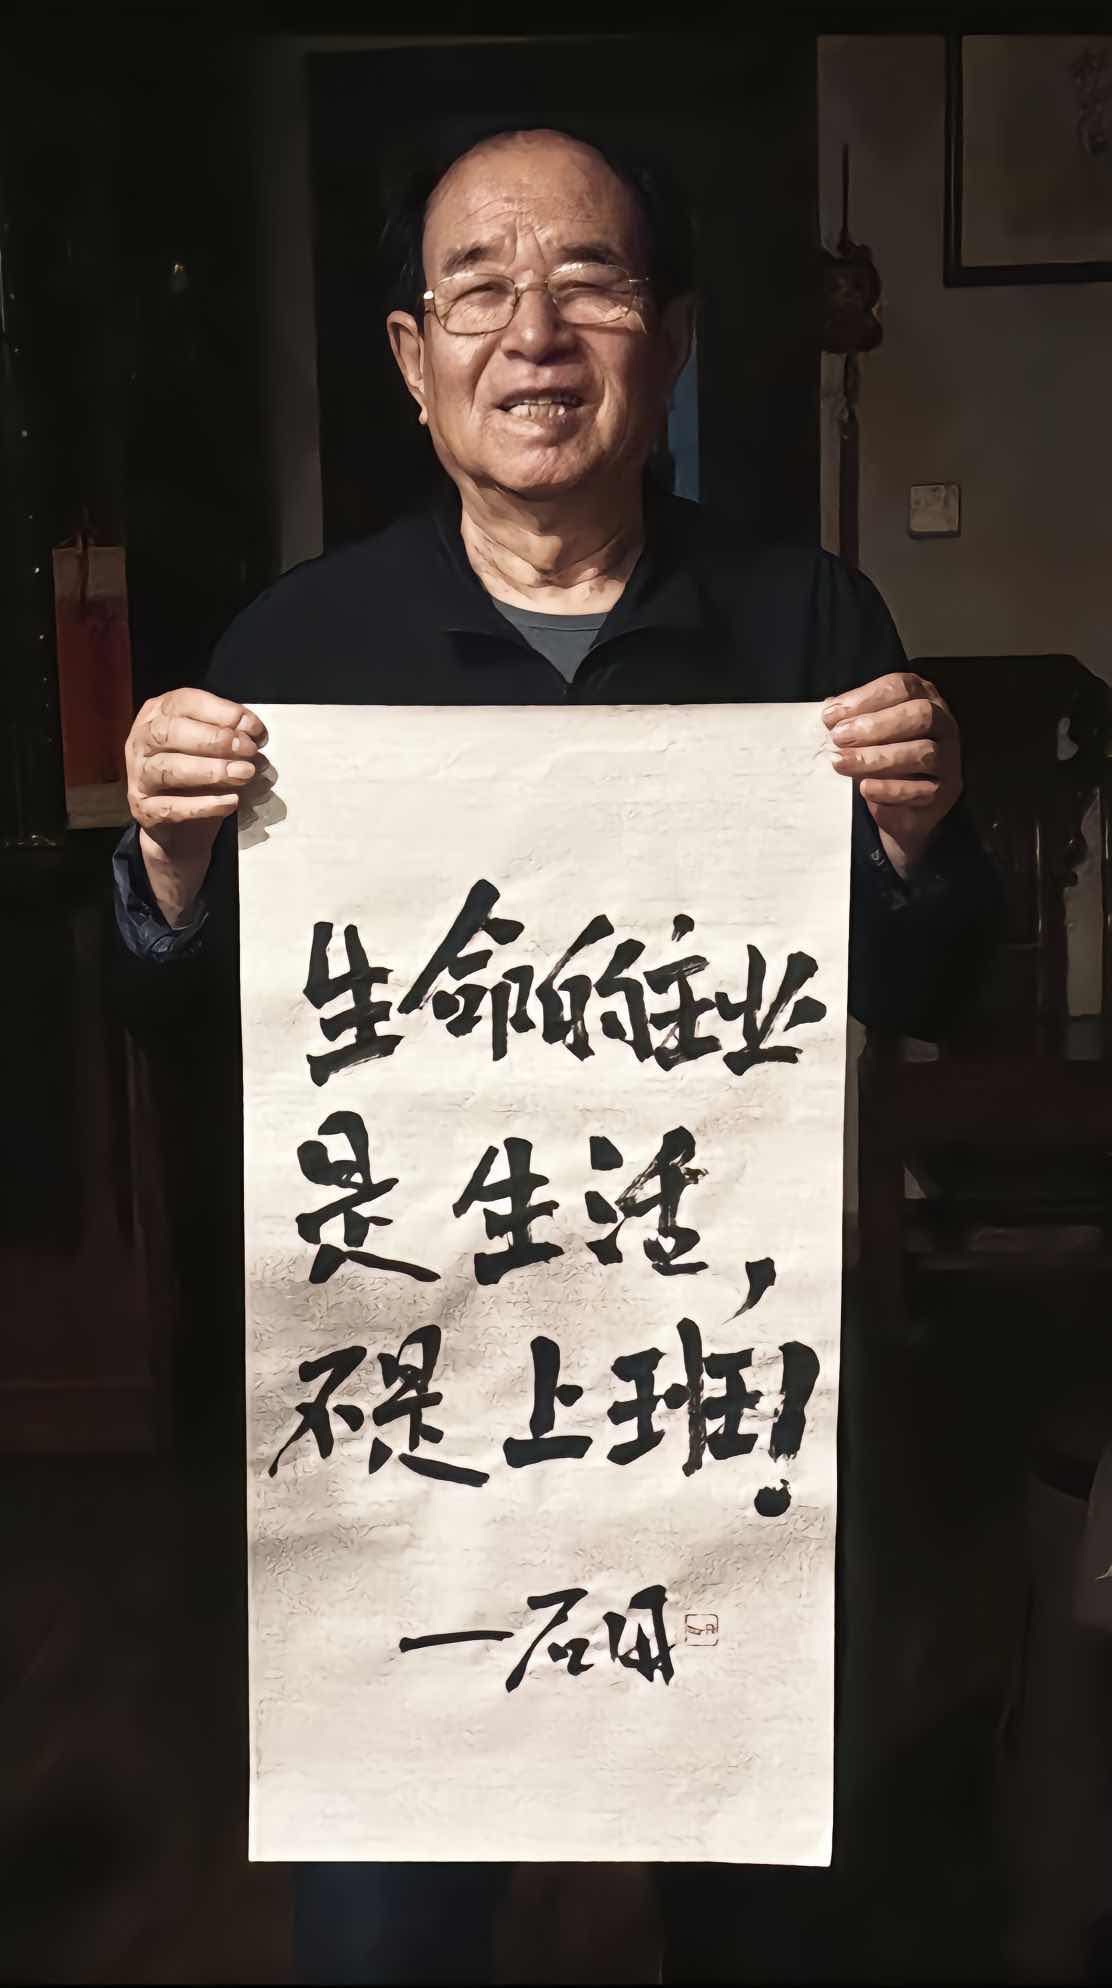 生命的主业
是生活，
不是上班！
一石